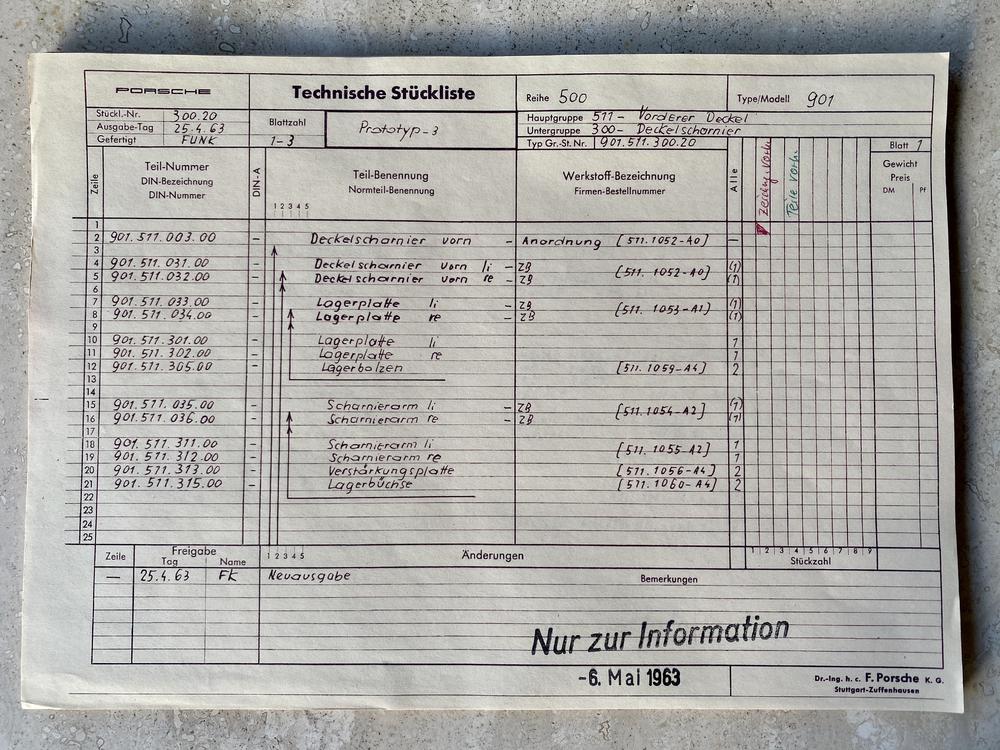 PORSCHE
Technische Stückliste
Reihe 500
Type/Modell 901
Stückl.-Nr. 300.20
Ausgabe-Tag 25.4.63
Gefertigt FUNK
Blattzahl
1-3
Prototyp-3
Hauptgruppe 511- Vorderer Deckel
Untergruppe 300- Deckelscharnier
Typ Gr.-St. Nr. 901.511.300.20
Blatt 1
Zeile
Teil-Nummer
DIN-Bezeichnung
DIN-Nummer
DIN-A
Teil-Benennung
Normteil-Benennung
1 2 3 4 5
Werkstoff-Bezeichnung
Firmen-Bestellnummer
Alle
Zeichng. vorh.
Teile vorh.
Gewicht
Preis
DM Pf
1
2 901.511.003.00 – Deckelscharnier vorn – Anordnung [511.1052-A0] –
3
4 901.511.031.00 – Deckelscharnier vorn li – ZB (1)
5 901.511.032.00 – Deckelscharnier vorn re – ZB [511.1052-A0] (1)
6
7 901.511.033.00 – Lagerplatte li – ZB (1)
8 901.511.034.00 – Lagerplatte re – ZB [511.1053-A1] (1)
9
10 901.511.301.00 – Lagerplatte li 1
11 901.511.302.00 – Lagerplatte re 1
12 901.511.305.00 – Lagerbolzen [511.1059-A4] 2
13
14
15 901.511.035.00 – Scharnierarm li – ZB (1)
16 901.511.036.00 – Scharnierarm re – ZB [511.1054-A2] (1)
17
18 901.511.311.00 – Scharnierarm li 1
19 901.511.312.00 – Scharnierarm re [511.1055-A2] 1
20 901.511.313.00 – Verstärkungsplatte [511.1056-A4] 2
21 901.511.315.00 – Lagerbüchse [511.1060-A4] 2
22
23
24
25
Zeile
Freigabe
Tag Name
1 2 3 4 5
Änderungen
1 2 3 4 5 6 7 8 9
Stückzahl
— 25.4.63 FK Neuausgabe
Bemerkungen
Nur zur Information
-6. Mai 1963
Dr.-Ing. h. c. F. Porsche K. G.
Stuttgart-Zuffenhausen